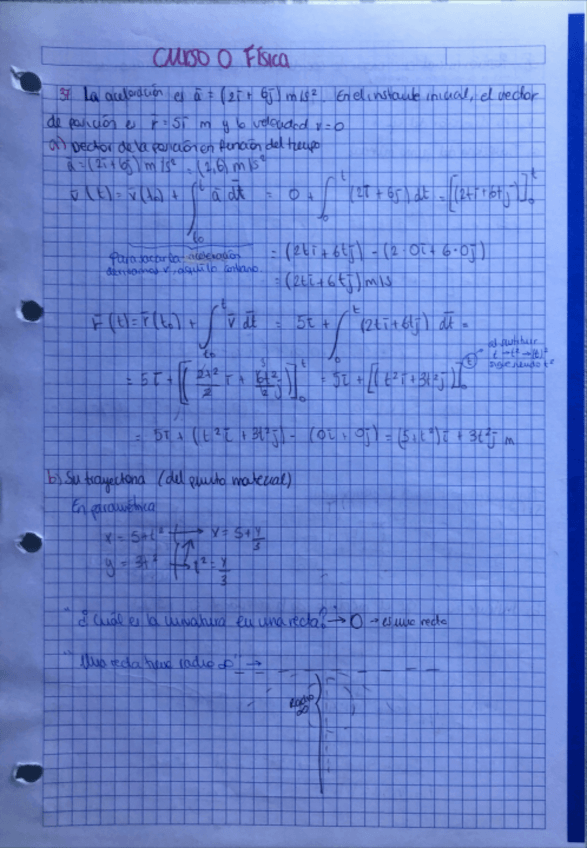 CURSO 0 FÍSICA
37 La aceleración es ā = (2ī + 6j̄) m/s². En el instante inicial, el vector
de posición es r̄ = 5ī m y la velocidad v = 0
a) Vector de la posición en función del tiempo
ā = (2ī + 6j̄) m/s² = (2,6) m/s²
v̄(t) = v̄(t₀) + ∫_{t₀}^{t} ā dt = 0 + ∫_0^t (2ī + 6j̄) dt = [(2tī + 6tj̄)]_0^t
Para sacar la aceleración
derivamos v, aquí lo contrario.
= (2tī + 6tj̄) - (2·0ī + 6·0j̄)
= (2tī + 6tj̄) m/s
r̄(t) = r̄(t₀) + ∫_{t₀}^{t} v̄ dt = 5ī + ∫_0^t (2tī + 6tj̄) dt =
al sustituir
t → t² → (t)²
sigue siendo t²
= 5ī + [(2t²/2 ī + 6t²/2 j̄)]_0^t = 5ī + [(t²ī + 3t²j̄)]_0^t
= 5ī + (t²ī + 3t²j̄) - (0ī + 0j̄) = (5+t²)ī + 3t²j̄ m
b) Su trayectoria (del punto material)
En paramétrica
x = 5+t² → x = 5 + y/3
y = 3t² → t² = y/3
"¿Cuál es la curvatura en una recta?" → 0 → es una recta
"Una recta tiene radio ∞" →
Radio
∞